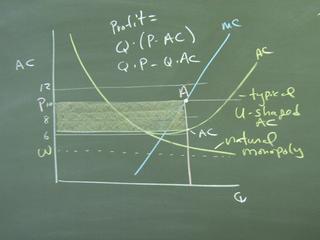 Profit =
Q · (P - AC)
Q · P - Q · AC
MC
AC
AC
12
P 10
8
6
W
A
AC
- typical
U-shaped
AC
natural
monopoly
Q